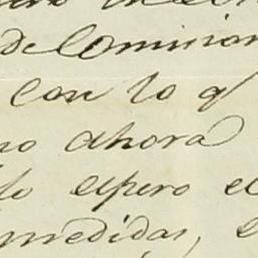 de Comision
con lo q
no ahora
lo espero el
medidas,